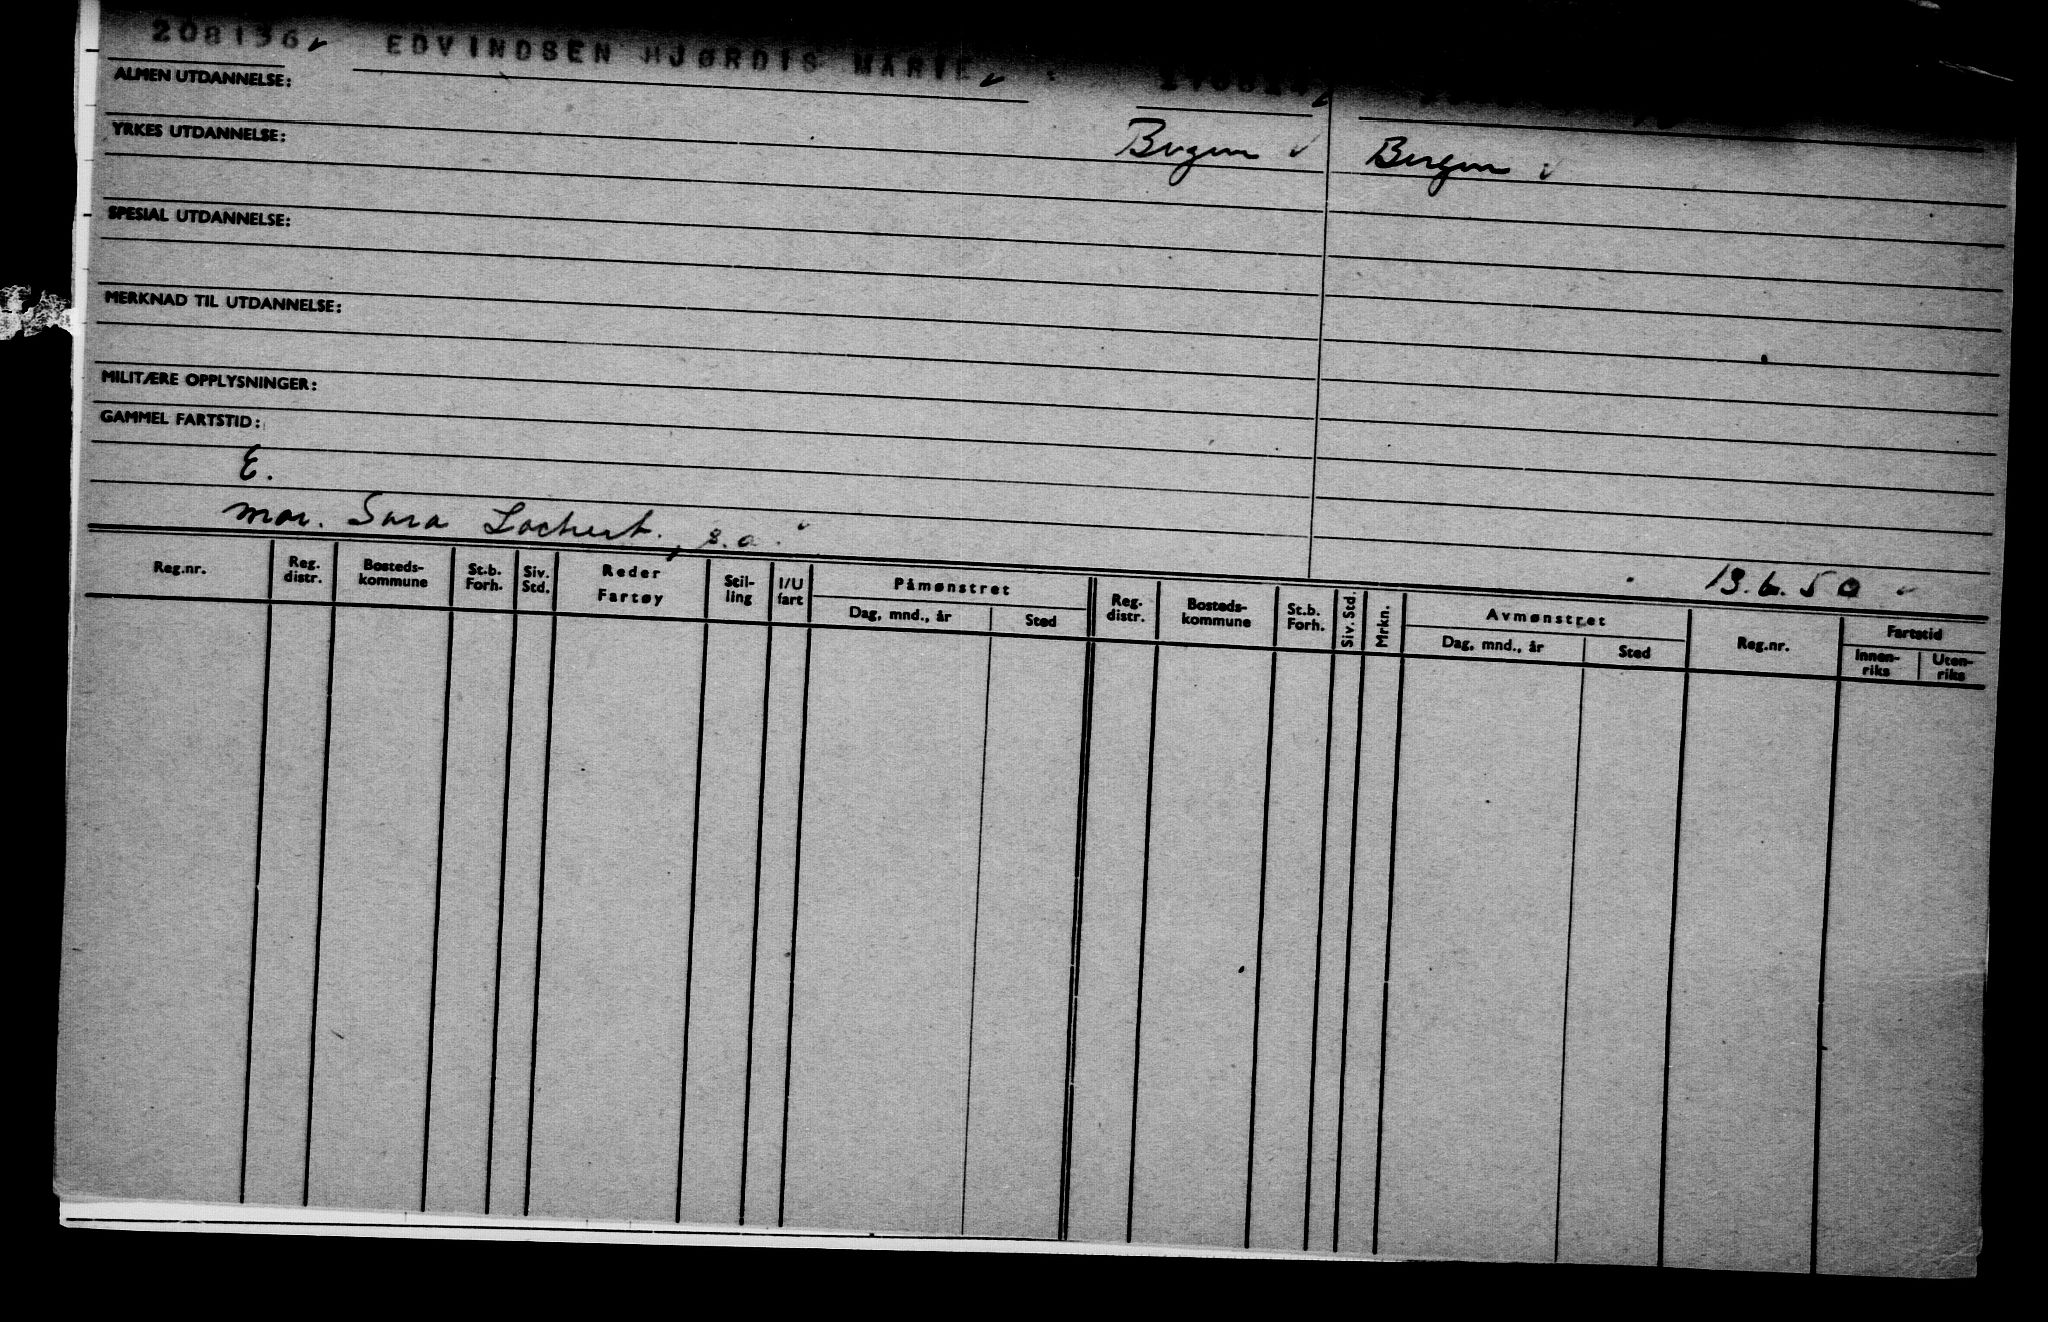 208136 EDVINDSEN HJØRDIS MARIE
ALMEN UTDANNELSE:
YRKES UTDANNELSE: Bergen Bergen
SPESIAL UTDANNELSE:
MERKNAD TIL UTDANNELSE:
MILITÆRE OPPLYSNINGER:
GAMMEL FARTSTID:
E.
mor. Sara Lochert., s.a.
13.6.50
Reg.nr. Reg. distr. Bosteds-kommune St.b. Forh. Siv. Std. Reder Fartøy Stil-ling I/U fart Påmønstret Dag, mnd., år Sted Reg. distr. Bosteds-kommune St.b. Forh. Siv. Std. Mrkn. Avmønstret Dag, mnd., år Sted Reg.nr. Fartstid Innen-riks Uten-riks